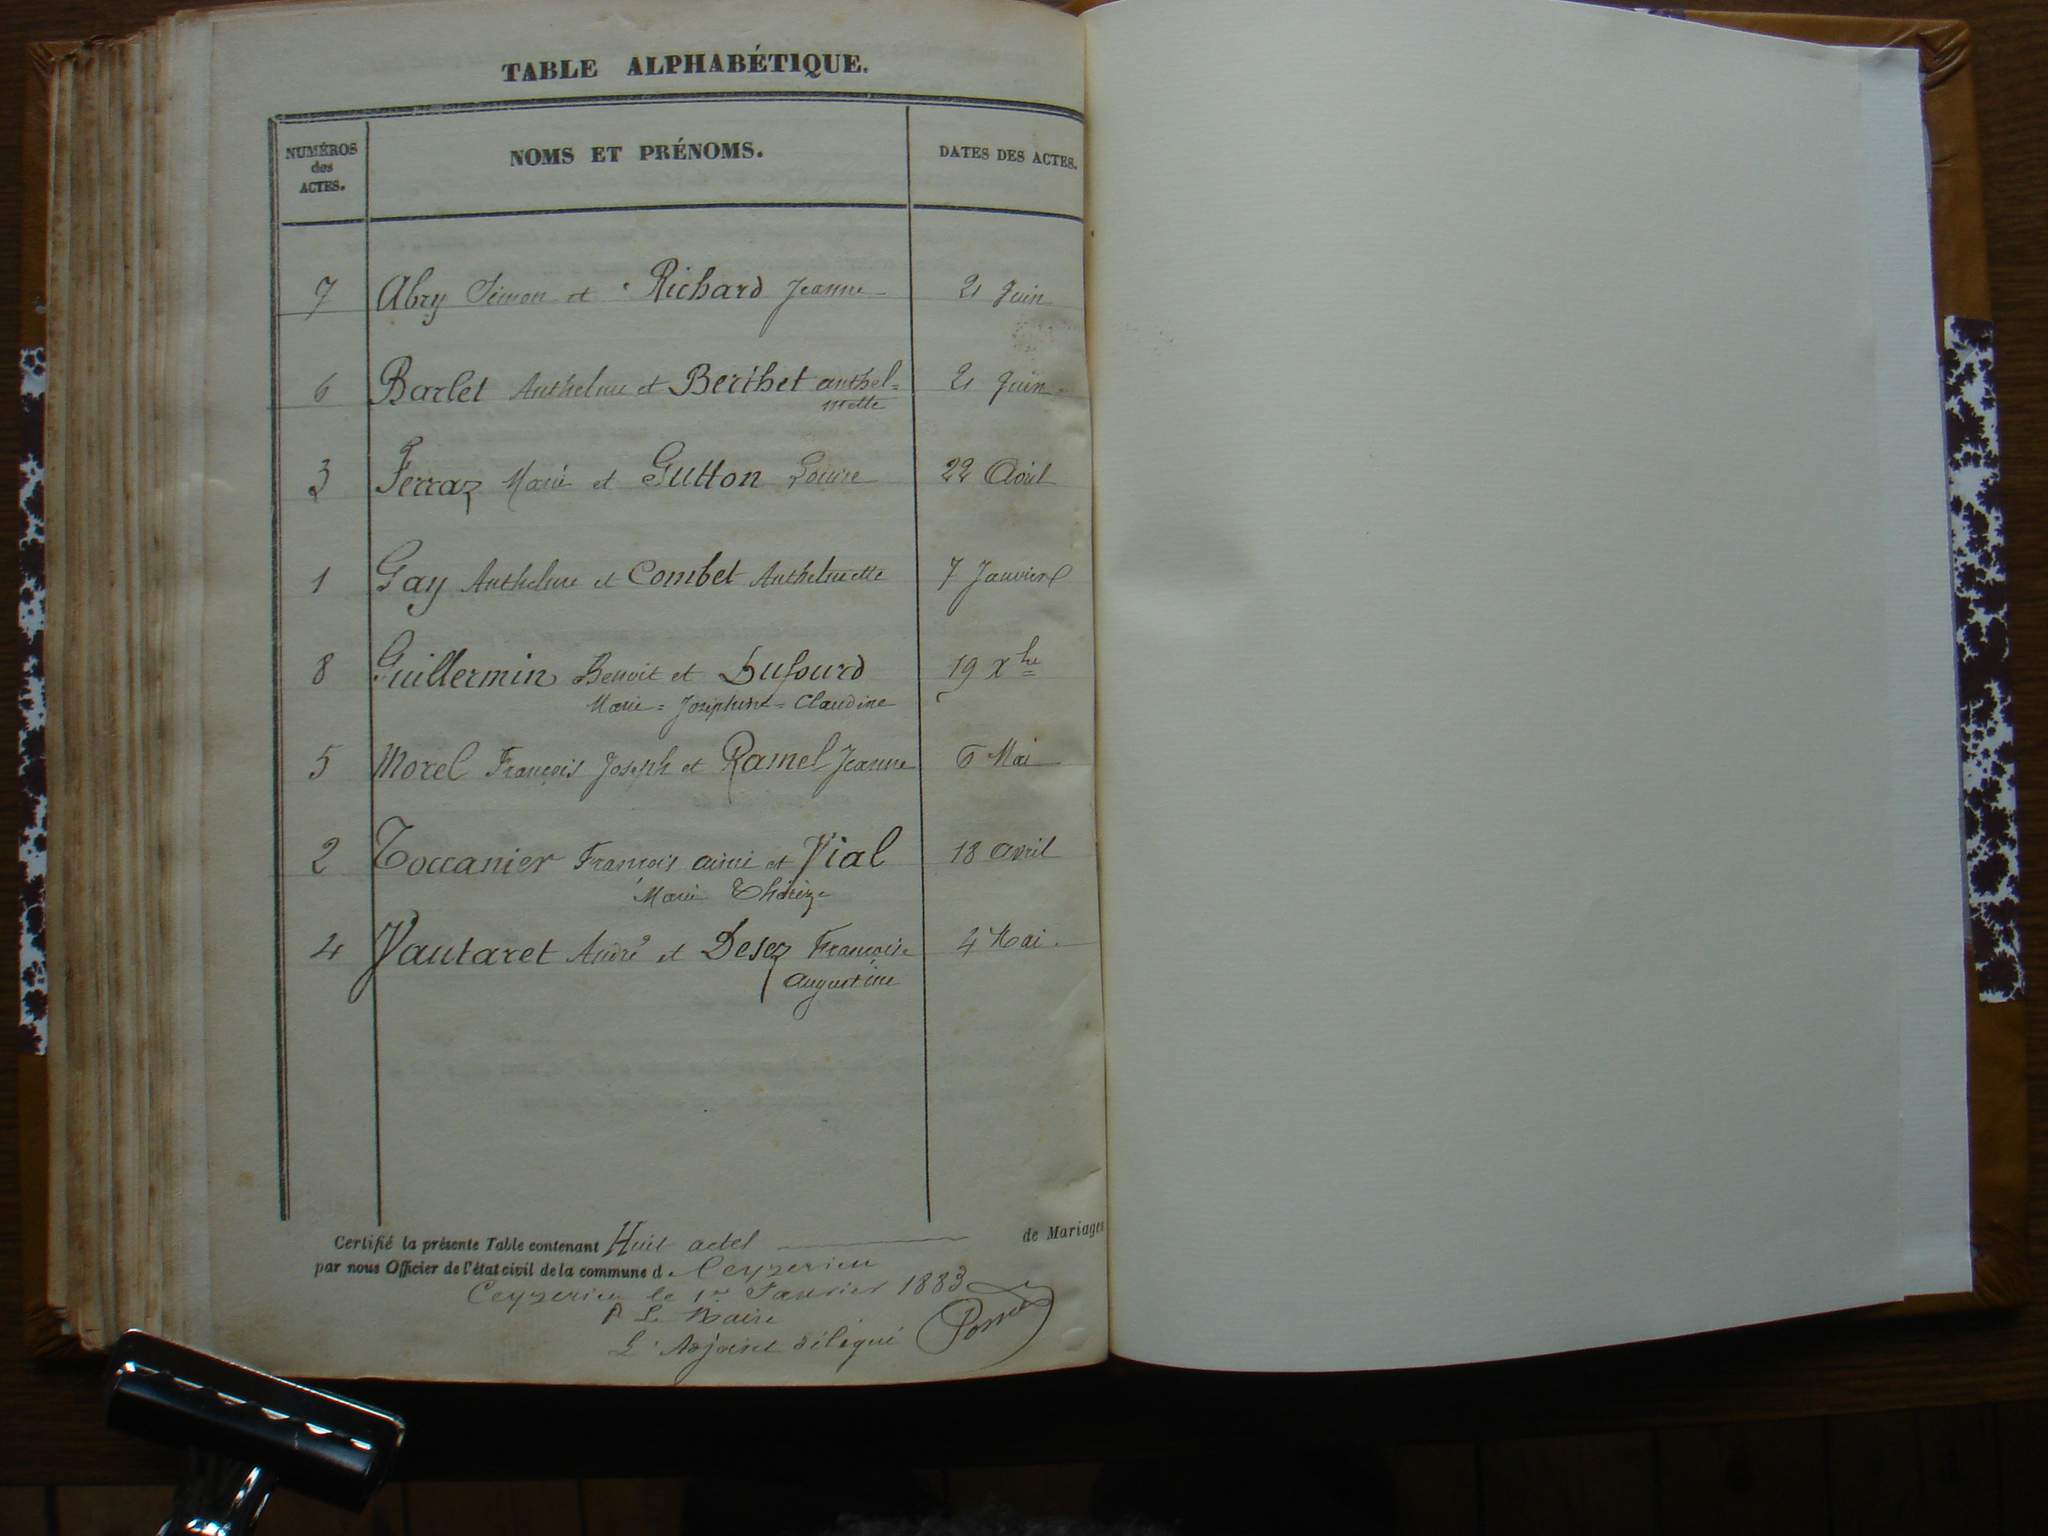 TABLE ALPHABÉTIQUE.
NUMÉROS des ACTES.
NOMS ET PRÉNOMS.
DATES DES ACTES.
7 Abry Simon et Richard Jeanne 21 Juin
6 Barlet Anthelme et Berthet anthel=
mette 21 Juin
3 Ferraz Marie et Gutton Louise 22 Avril
1 Gay Anthelme et Combet Anthelmette 7 Janvier
8 Guillermin Benoit et Dufourd 19 Xbre
Marie = Joséphine = Claudine
5 Morel François Joseph et Ramel Jeanne 6 Mai
2 Toccanier François aimé et Vial 18 avril
Marie Thérèze
4 Vautaret André et Desez Françoise 4 Mai
augustine
Certifié la présente Table contenant Huit actes de Mariages
par nous Officier de l'état civil de la commune d Ceyzerieu
Ceyzerieu le 1er Janvier 1883
P Le Maire
L'Adjoint délégué